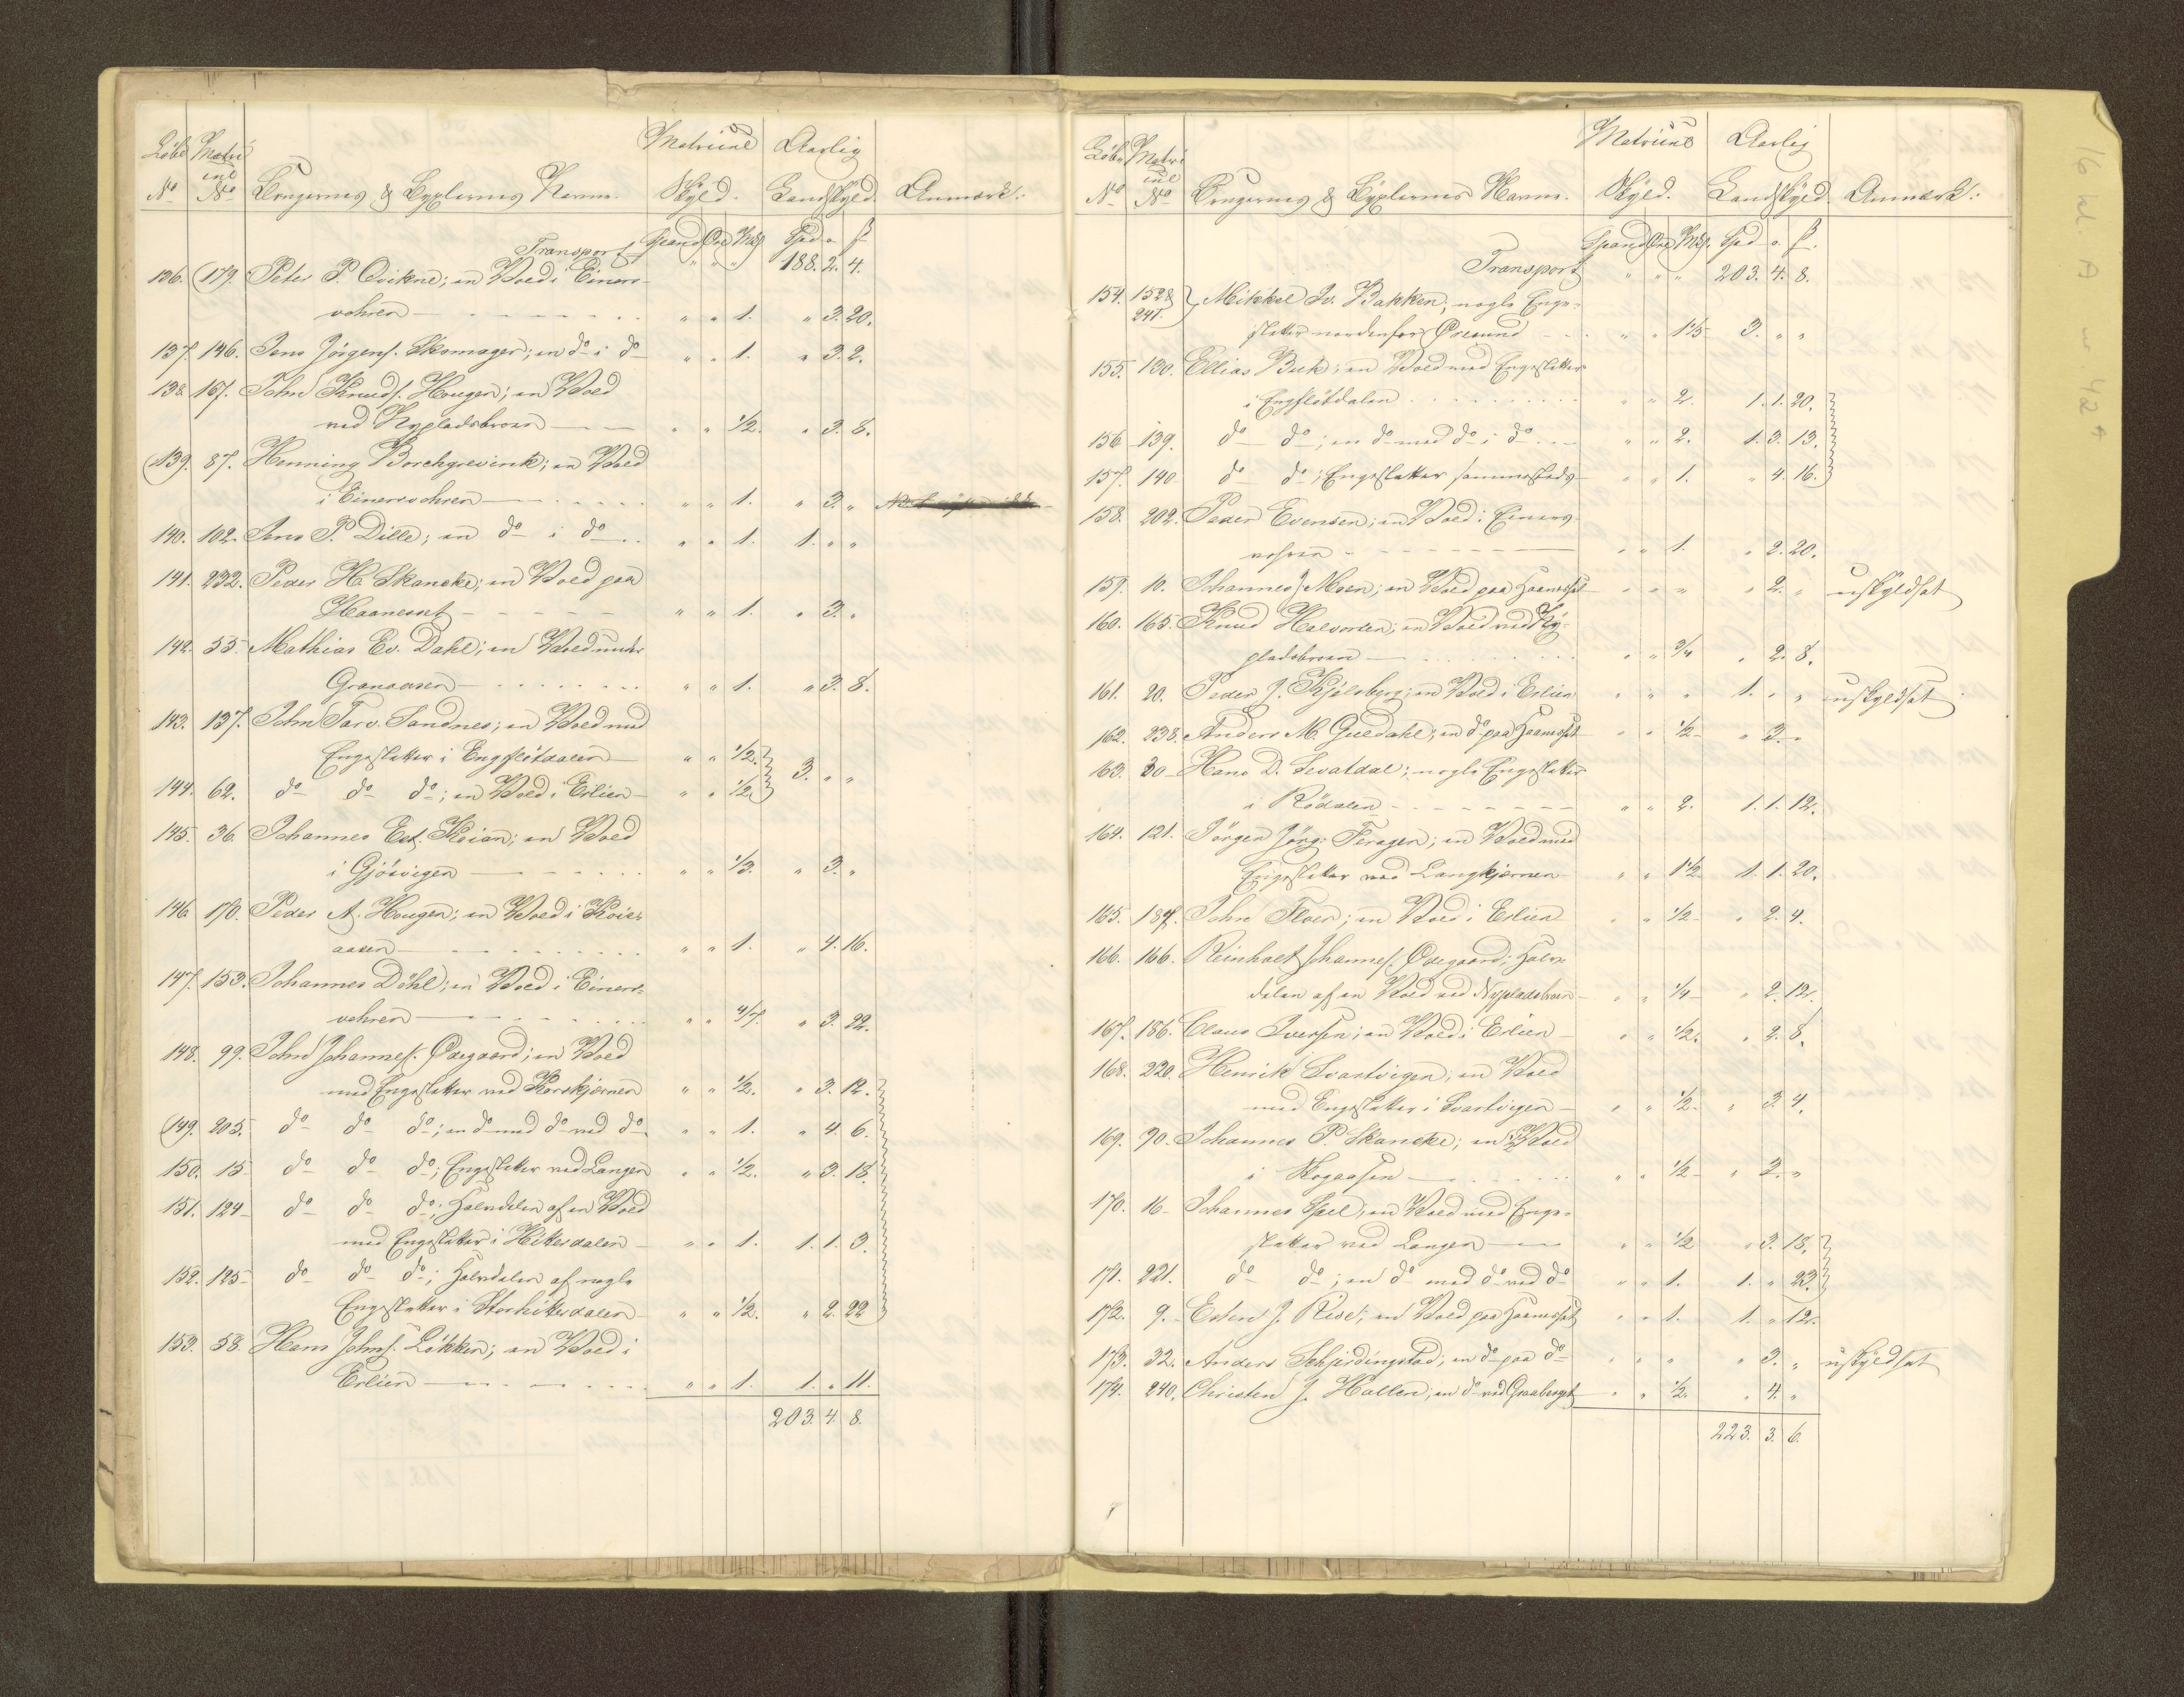 Löbe Matri Matriuul Aarlig
uul
No No Brugernes & Byxlernes Navne. Skyld. Landskyld. Anmærk:
Spand Øre Mkl. Spd o. ß
Transport " " " 188. 2. 4.
136. 179. Peter P. Qvikne; en Vold i Einers-
vohren " " 1. " 3. 20.
137. 146. Jens Jörgens. Skomager; en do i do " " 1. " 3. 2.
138. 167. John Knuds. Hougen; en Vold
ved Nypladsbroen " " 1/2. " 3. 8.
139. 87. Henning Borchgrevink; en Vold
i Einersvohren " " 1. " 3. "
140. 102. Jens P. Dille; en do i do " " 1. 1. " "
141. 232. Peder H. Skancke; en Vold paa
Haanesset " " 1. " 3. "
142. 55. Mathias Ev. Dahl; en Vold under
Granaasen " " 1. " 3. 8.
143. 137. John Tarv. Sandnes; en Vold med
Engesletter i Engflötdalen " " 1/2.
3. " "
144. 62. do do do; en Vold i Erlien " " 1/2.
145. 36. Johannes Est. Koian; en Vold
i Gjösvigen " " 1/3. " 3. "
146. 170. Peder A. Hougen; en Vold i Koie-
aasen " " 1. " 4. 16.
147. 153. Johannes Döhl; en Vold i Einers-
vohren " " 4/7. " 3. 22.
148. 99. John Johannes. Ødegaard; en Vold
med Engesletter ved Korskjernen " " 1/2. " 3. 12.
149. 205. do do do; en do med do ved do " " 1. " 4. 6.
150. 15 do do do; Engesletter ved Langen " " 1/2. " 3. 18.
151. 124 do do do; Halvdelen af en Vold
med Engesletter i Hitterdalen " " 1. 1. 1. 3.
152. 125 do do do; Halvdelen af nogle
Engesletter i Storhitterdalen " " 1/2. " 2. 22
153. 58. Hans Johns. Lökken; en Vold i
Erlien " " 1. 1. " 11.
203. 4. 8.
Löbe Matri Matriuul Aarlig
uul
No No Brugernes & Byxlernes Navne. Skyld. Landskyld. Anmærk:
Spand Øre Mkl. Spd o. ß.
Transport " " " 203. 4. 8.
154. 152 & Mikkel Iv. Bakken; nogle Enge-
241.
sletter nordenfor Øresund " " 1 1/5 3. " "
155. 130. Ellias Buk; en Vold med Engesletter
i Engflötdalen " " 2. 1. 1. 20.
156 139. do do; en do med do i do " " 2. 1. 3. 13.
157. 140 do do; Engesletter sammesteds " " 1. " 4. 16.
158. 202. Peder Evensen; en Vold i Einers-
vohren " " 1. " 2. 20.
159. 10. Johannes J. Moen; en Vold paa Haanesset " " " " 2. " uskyldsat
160. 165. Knud Halvorsen; en Vold ved Ny-
pladsbroen " " 3/4 " 2. 8.
161. 20. Peder J. Kjölsberg; en Vold i Erlien " " " 1. " " uskyldsat
162. 238. Anders M. Guldahl; en do paa Haanesset " " 1/2 " 3. "
163. 30 Hans D. Sevatdal; nogle Engesletter
i Rödalen " " 2. 1. 1. 12.
164. 121. Jörgen Jörg. Feragen; en Vold med
Engesletter ved Langkjernen " " 1 1/2 1. 1. 20.
165. 187. John Floer; en Vold i Erlien " " 1/2 " 2. 4.
166. 166. Reinholt Johannes. Ødegaard; Halv-
delen af en Vold ved Nypladsbroen " " 1/4 " 2. 12.
167. 186. Claus Iversen; en Vold i Erlien " " 1/2. " 2. 8.
168. 220. Henrik Svartvigen; en Vold
med Engesletter i Svartvigen " " 1/2 " 3. 4.
169. 90. Johannes P. Skancke; en Vold
i Skogaasen " " 1/2 " 2. "
170. 16 Johannes Spell; en Vold med Enge-
sletter ved Langen " " 1/2 " 3. 18.
171. 221. do do; en do med do ved do " " 1. 1. " 23.
172. 9. Esten J. Rise; en Vold paa Haanesset " " 1. 1. " 12.
173. 32. Anders Schjerdingstad; en do paa do " " " " 3. " uskyldsat
174. 240. Christen J. Hallen; en do ved Graaberget " " 1/2. " 4. "
223. 3. 6.